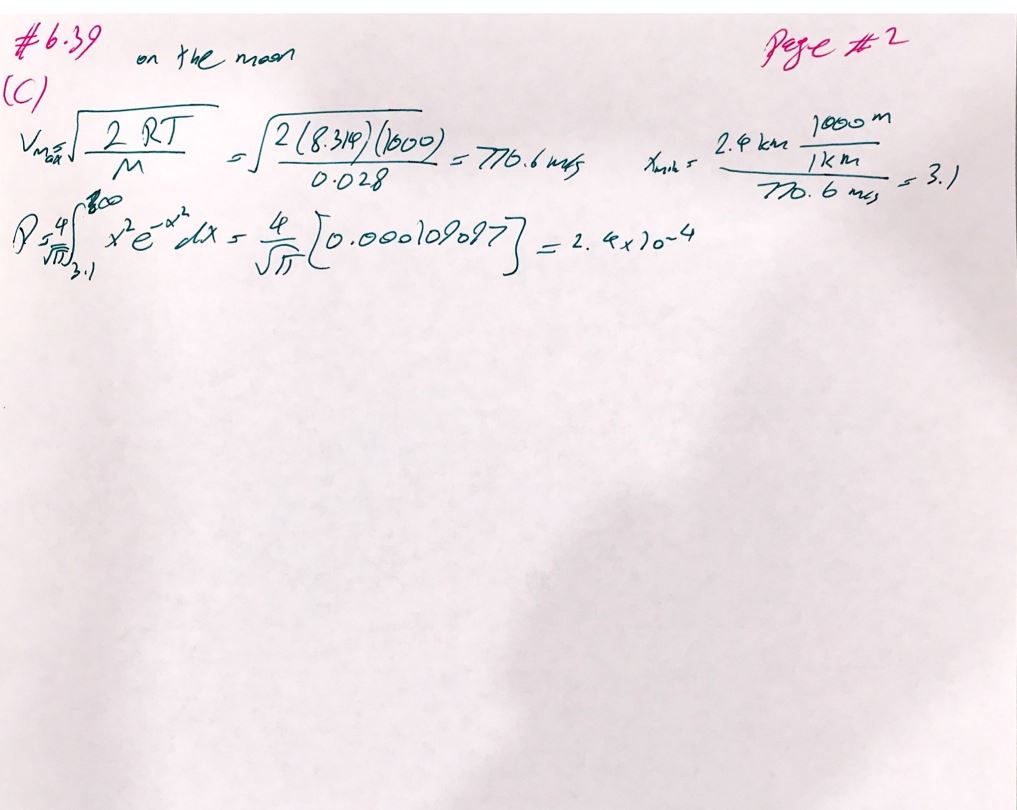 #6.39 on the moon Page #2
(C)
Vmax = √(2 RT / M) = √(2(8.314)(1000) / 0.028) = 770.6 m/s xmin = (2.4 km 1000 m / 1 km) / 770.6 m/s = 3.1
P = 4/√π ∫3.1 x²e^-x² dx = 4/√π [0.000109097] = 2.4x10-4